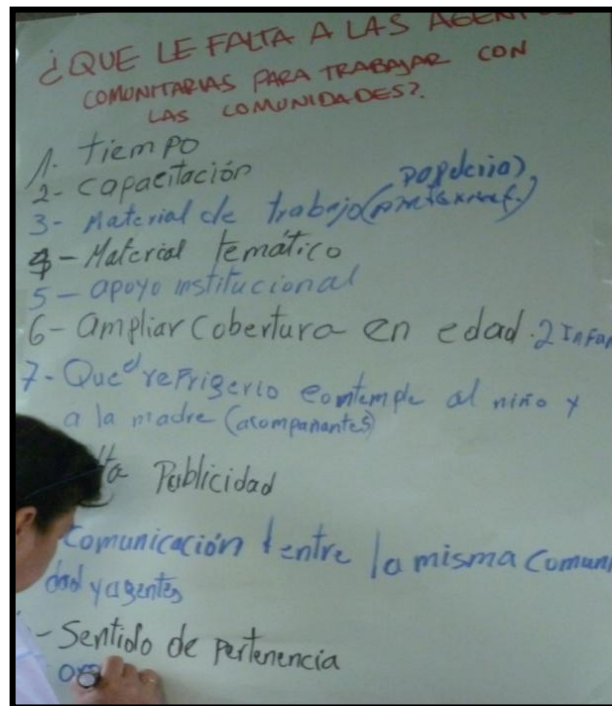 ¿QUE LE FALTA A LAS AGENT
COMUNITARIAS PARA TRABAJAR CON
LAS COMUNIDADES?.
1. tiempo
2- capacitación
3- Material de trabajo (papeleria)
4- Material temático
5- apoyo institucional
6- ampliar cobertura en edad. 2 Infan
7- Que el refrigerio contemple al niño y
a la madre (acompañantes)
ta Publicidad
comunicación entre la misma comuni
dad y agentes
- Sentido de pertenencia